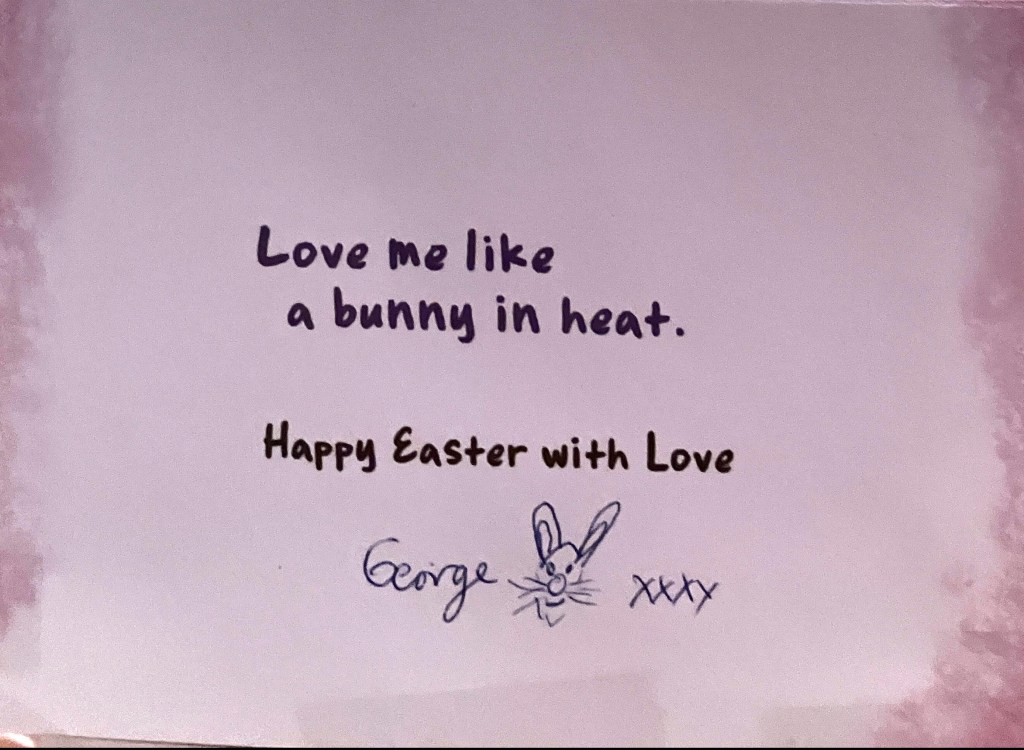 Love me like
a bunny in heat.
Happy Easter with Love
George xxxy